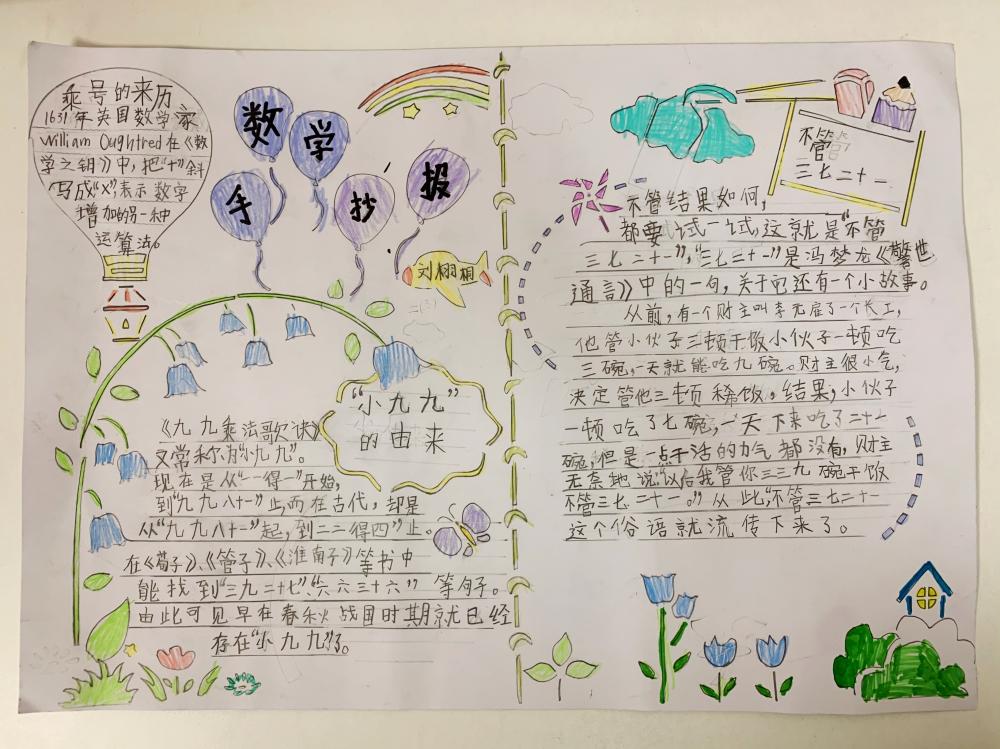 乘号的来历
1631年英国数学家
William Oughtred在《数
学之钥》中,把“+”斜
写成“X”,表示数字
增加的另一种
运算法。
数学
手抄报
刘栩桐
“小九九”
的由来
《九九乘法歌诀》
又常称为“小九九”。
现在是从“一得一”开始,
到“九九八十一”止,而在古代,却是
从“九九八十一”起,到二二得四”止。
在《荀子》、《管子》、《淮南子》等书中
能找到“三九二十七”、“六六三十六”等句子。
由此可见早在春秋战国时期就已经
存在“小九九”了。
不管
三七二十一
不管结果如何,
都要试一试,这就是“不管
三七二十一”,“三七二十一”是冯梦龙《警世
通言》中的一句,关于它还有一个小故事。
从前,有一个财主叫李无雇了一个长工,
他管小伙子三顿干饭小伙子一顿吃
三碗,一天就能吃九碗。财主很小气,
决定管他三顿稀饭。结果,小伙子
一顿吃了七碗,一天下来吃了二十一
碗,但是一点干活的力气都没有,财主
无奈地说“以后我管你三三九碗干饭
不管三七二十一。”从此,“不管三七二十一
这个俗语就流传下来了。